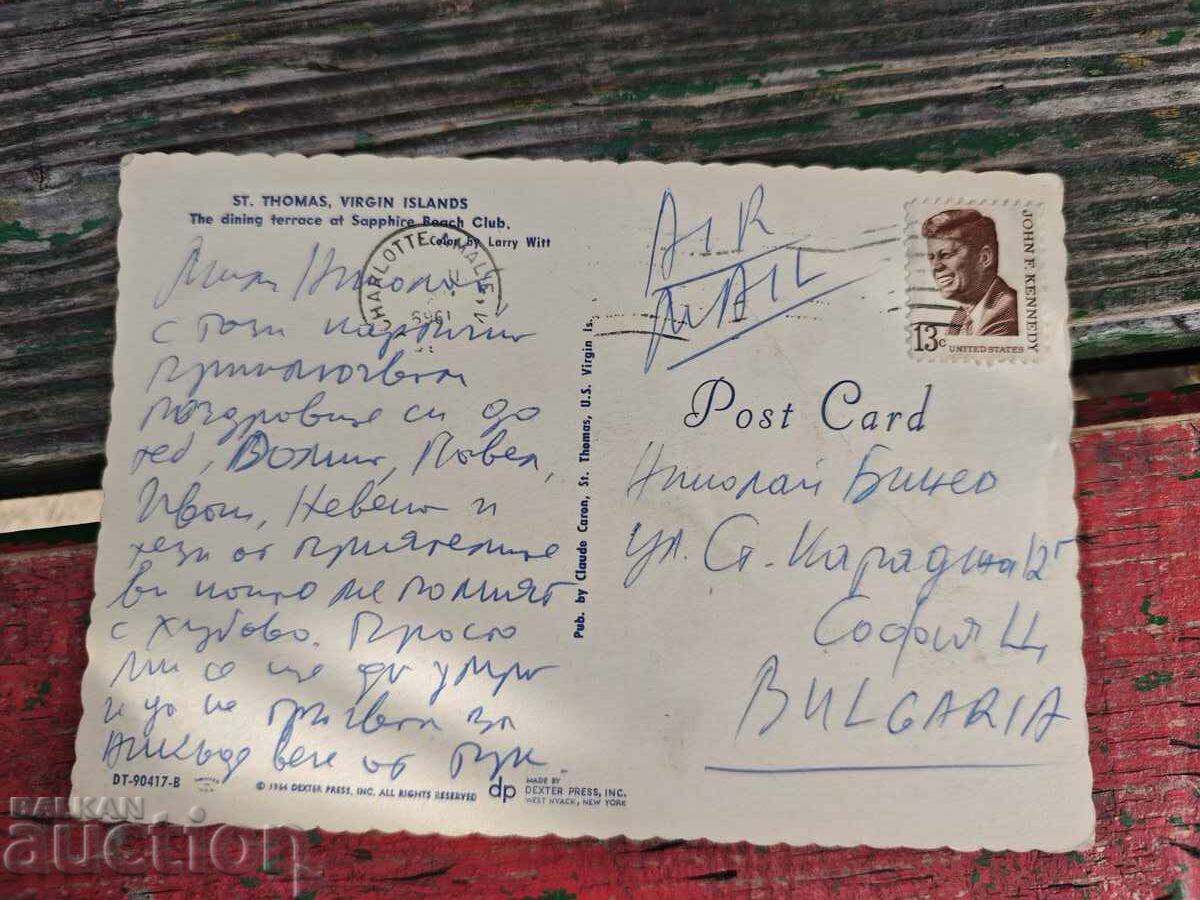 ST. THOMAS, VIRGIN ISLANDS
The dining terrace at Sapphire Beach Club.
Color by Larry Witt
CHARLOTTE AMALIE, V.I.
1965
Мили Николай
с тази картичка
приключвам
поздравите си до
теб, Павел,
Иван, Невена и
тези от приятелите
ви които ме помнят
с хубаво. Просто
ми се ще да умра
и да не тръгвам за
никъде вече от тук.
DT-90417-B
© 1964 DEXTER PRESS, INC. ALL RIGHTS RESERVED
dp MADE BY
DEXTER PRESS, INC.
WEST NYACK, NEW YORK
Pub. by Claude Caron, St. Thomas, U.S. Virgin Is.
AIR
MAIL
JOHN F. KENNEDY
13c UNITED STATES
Post Card
Николай Бинев
ул. Ст. Караджа 12
София Ц
BULGARIA
BALKAN
auction